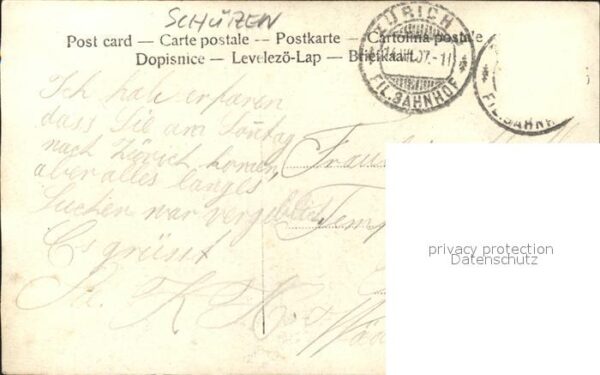 SCHÜZEN
Post card — Carte postale — Postkarte — Cartolina postale
Dopisnice — Levelező-Lap — Briefkaart
ZÜRICH
VII.07.-11
FIL.BAHNHOF
FIL.BAHNH
Ich habe erfaren
dass Sie am Sontag
nach Zürich komen,
aber alles langes
Suchen war vergeblich
Es grüsst
Frau
Temp
privacy protection
Datenschutz